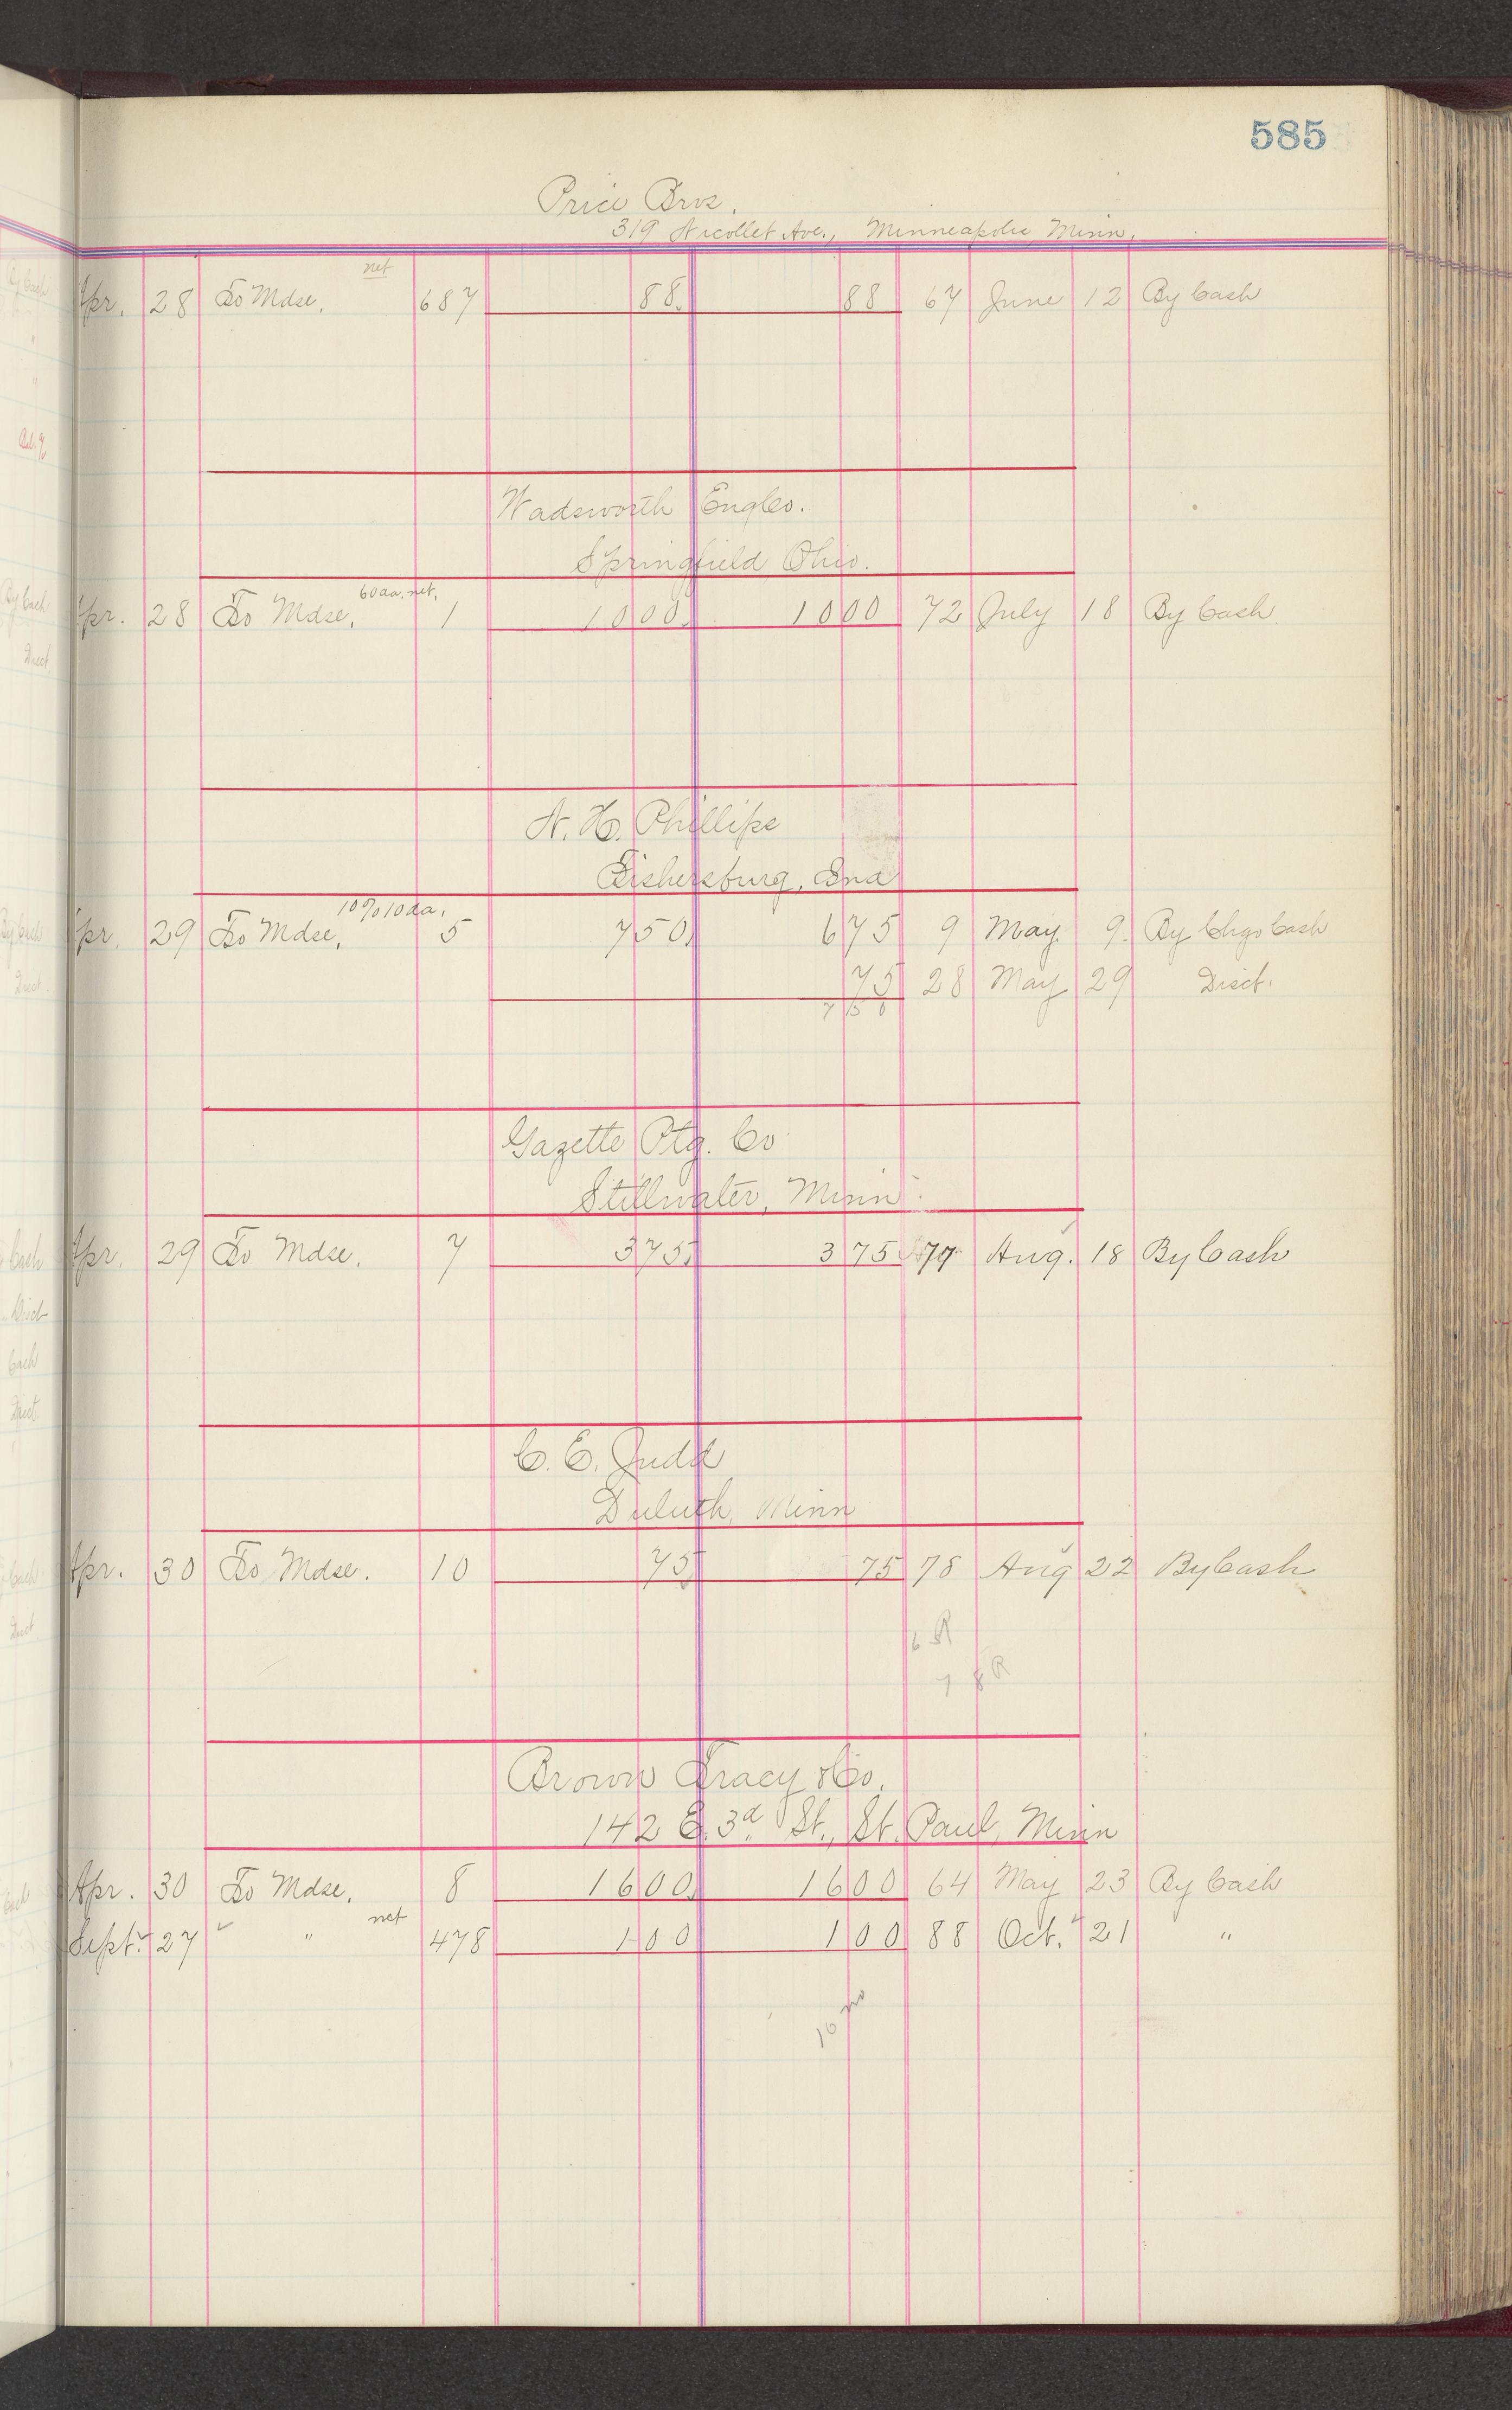 585
Price Bros.
319 Nicollet Ave., Minneapolis Minn.
net
Apr. 28 To Mdse. 687 88. 88 67 June 12 By Cash
Wadsworth Eng Co.
Springfield Ohio.
60 da. net.
Apr. 28 To Mdse. 1 1000. 1000 72 July 18 By Cash
N. H. Phillips
Fishersburg, Ind
10% 10 da.
Apr. 29 To Mdse. 5 750. 675 9 May 9. By Chgo Cash
75 28 May 29 Disct.
750
Gazette Ptg. Co
Stillwater, Minn.
Apr. 29 To Mdse. 7 375. 375 77 Aug. 18 By Cash
C. E. Judd
Duluth, Minn
Apr. 30 To Mdse. 10 75. 75 78 Aug 22 By Cash
6 R
7 8 R
Brown Tracy & Co.
142 E. 3d St., St. Paul, Minn
Apr. 30 To Mdse. 8 1600. 1600 64 May 23 By Cash
net
Sept. 27 " " 478 100 100 88 Oct. 21 "
10